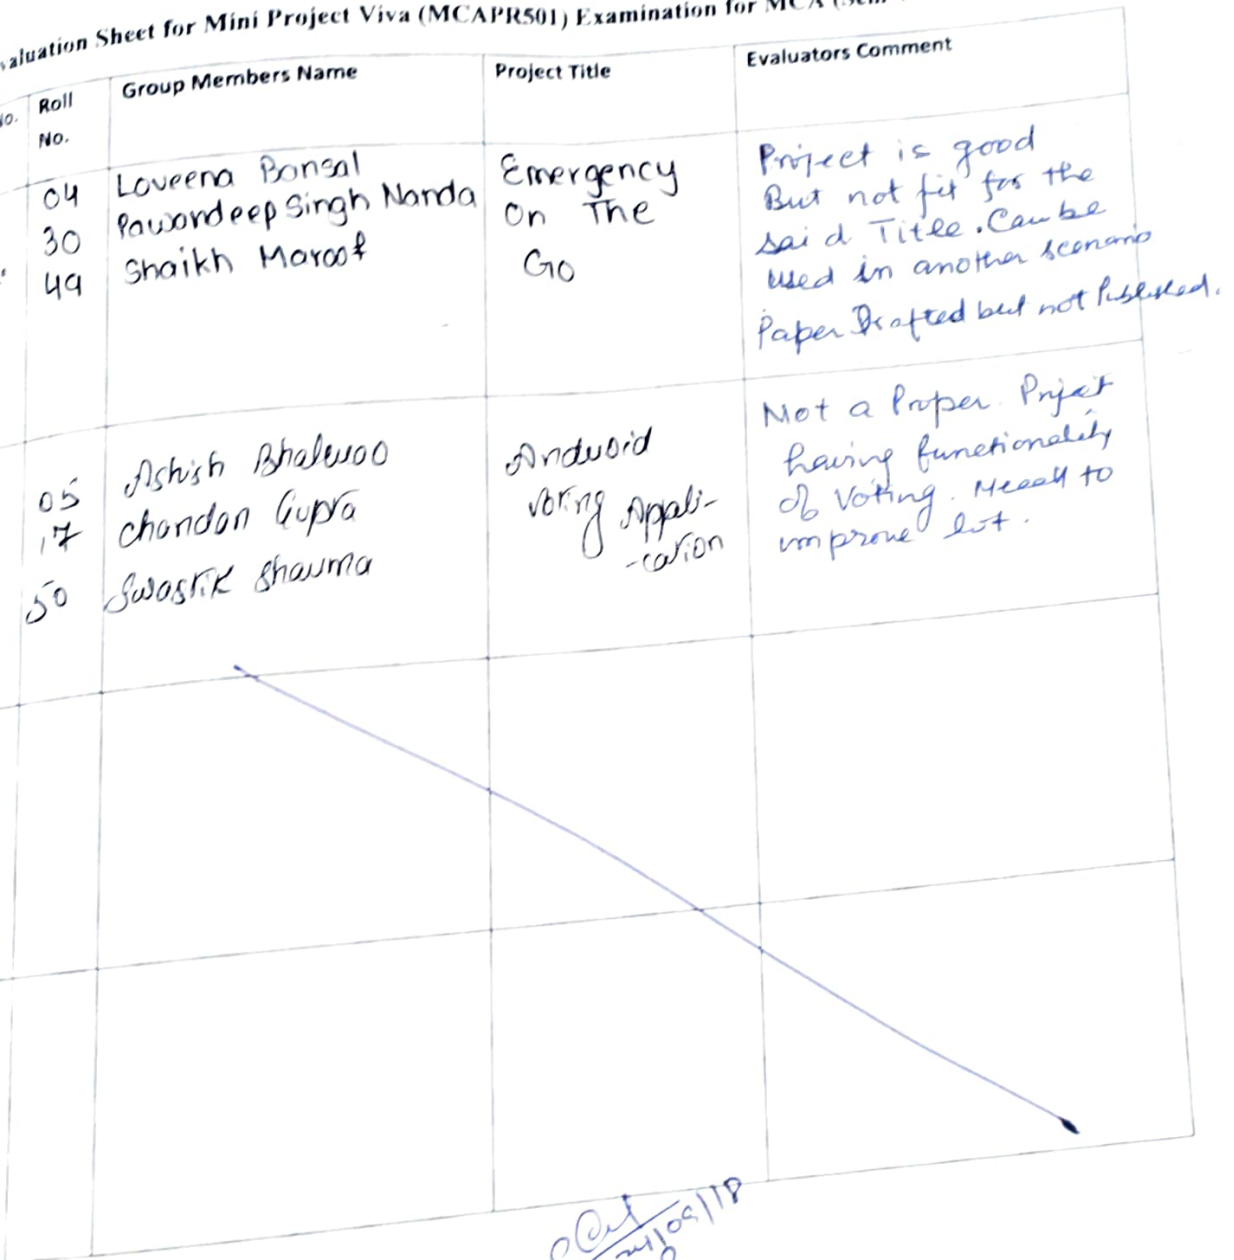 valuation Sheet for Mini Project Viva (MCAPR501) Examination for MCA
No.
Roll No.
Group Members Name
Project Title
Evaluators Comment
04 Loveena Bansal
30 Pawandeep Singh Nanda
49 Shaikh Maroof
Emergency
On The
Go
Project is good
But not fit for the
said Title. Can be
used in another scenario
Paper Drafted but not Published.
05 Ashish
17 Chandan Gupta
50 Swastik Sharma
Android
Voting Appli-
-cation
Not a Proper Project
having functionality
of Voting. to
improve lot.